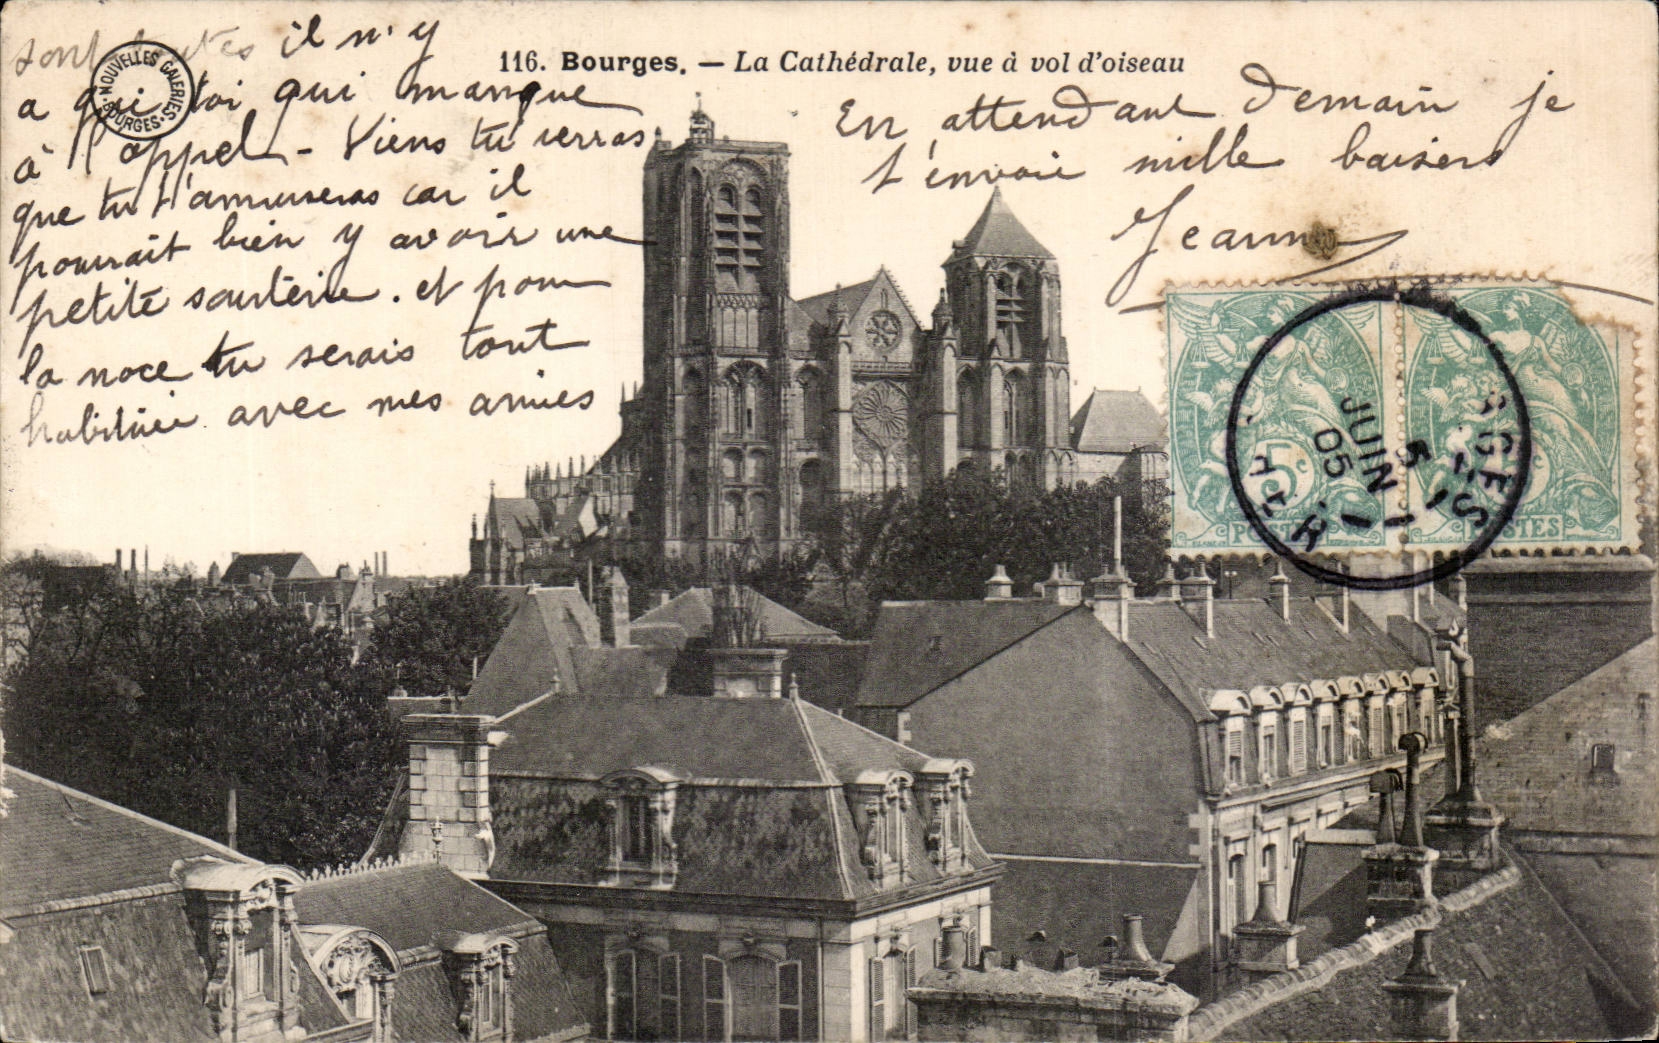 116. Bourges. — La Cathédrale, vue à vol d'oiseau
NOUVELLES GALERIES
BOURGES
sont toutes il n'y
a que toi qui manque
à l'appel - Viens tu verras
que tu t'amuseras car il
pourrait bien y avoir une
petite sauterie. et pour
la noce tu serais tout
habituée avec mes amies
En attendant demain je
t'envoie mille baisers
Jeanne
5c
POSTES
POSTES
5 JUIN
05
CHER